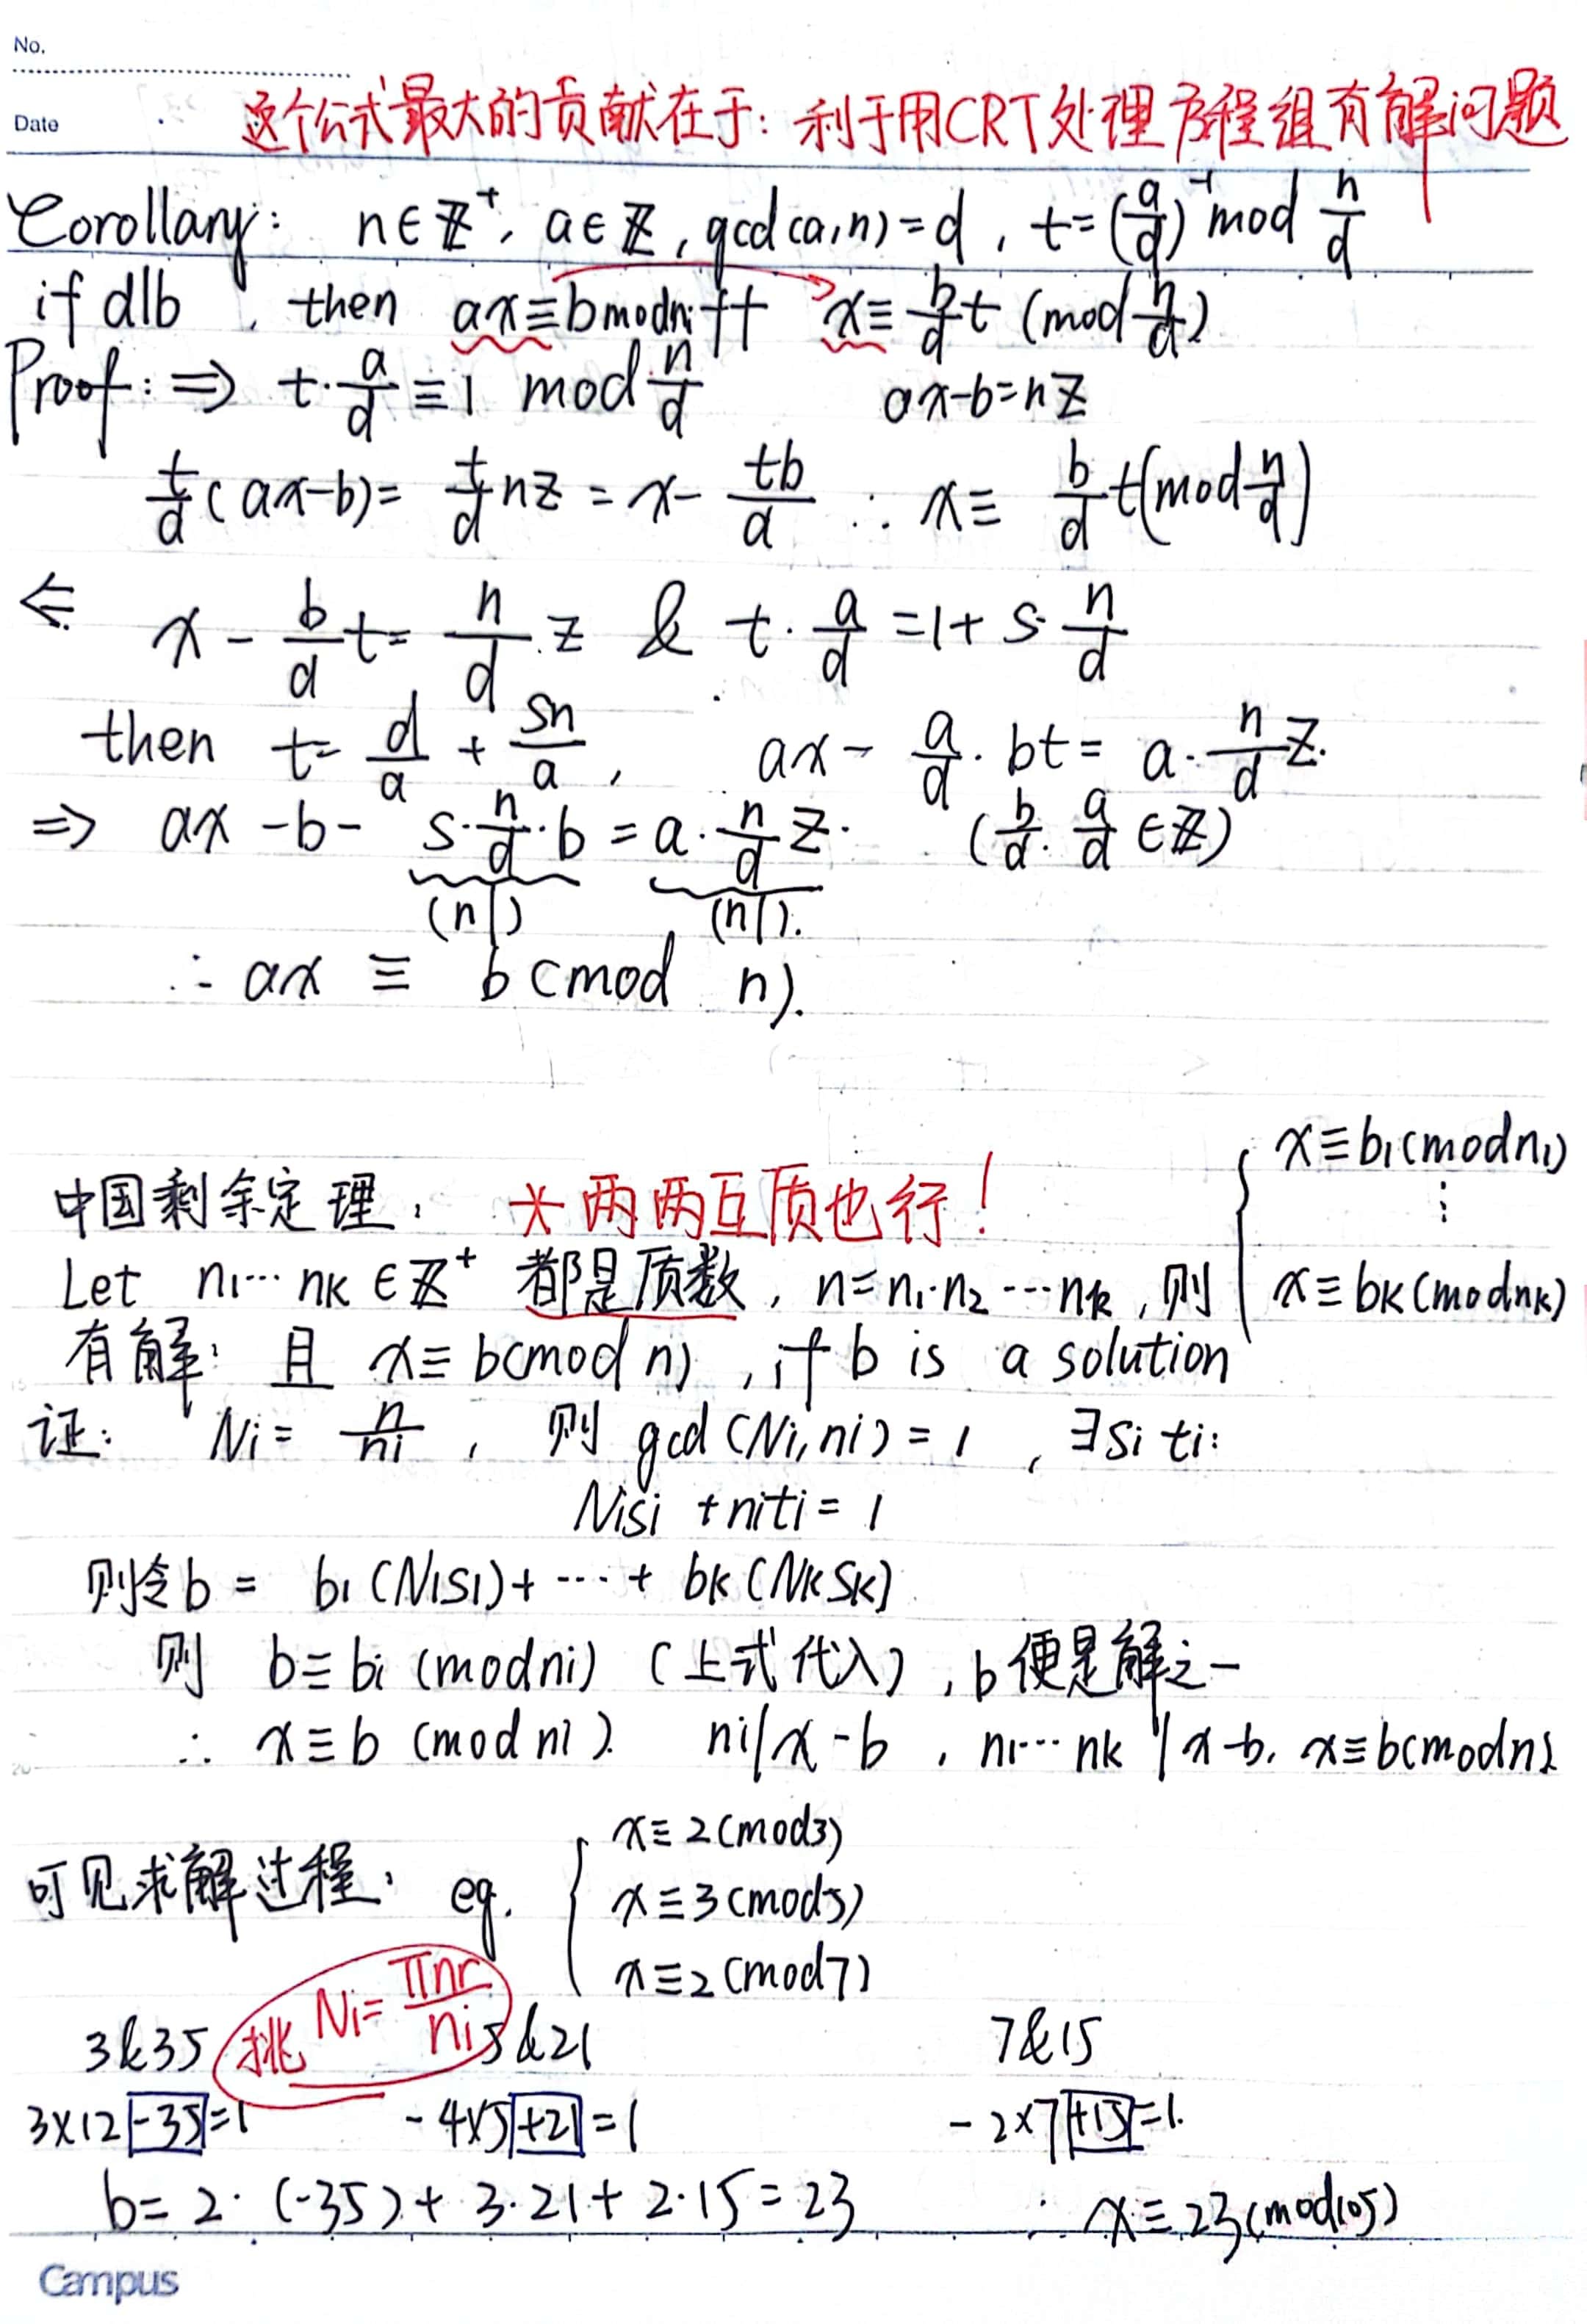 No.
Date
这个公式最大的贡献在于：利于用CRT处理方程组有解问题
Corollary: n∈ℤ⁺, a∈ℤ, gcd(a,n)=d, t=(a/d)⁻¹ mod n/d
if d|b, then ax≡b mod n iff x≡ b/d t (mod n/d)
Proof: ⇒ t·a/d ≡1 mod n/d    ax-b=nz
t/d (ax-b)= t/d nz = x- tb/d ∴ x≡ b/d t(mod n/d)
⇐ x - b/d t= n/d·z & t·a/d =1+ s·n/d
then t= d/a + sn/a, ax- a/d·bt= a·n/d z.
⇒ ax-b- s·n/d·b = a·n/d z. (b/d. a/d ∈ℤ)
(n|) (n|).
∴ ax ≡ b (mod n).
中国剩余定理: *两两互质也行!
Let n₁⋯nk ∈ℤ⁺ 都是质数, n=n₁·n₂⋯nk, 则 { x≡b₁(mod n₁) ⋮ x≡bk(mod nk)
有解: 且 x≡b(mod n), if b is a solution
证: Ni= n/ni, 则 gcd(Ni,ni)=1, ∃si ti:
Nisi +niti=1
则令b = b₁(N₁s₁)+⋯+ bk(Nksk)
则 b≡bi (mod ni) (上式代入), b便是解之一
∴ x≡b (mod ni). ni|x-b, n₁⋯nk |x-b, x≡b(mod n).
可见求解过程: eg. { x≡2(mod3)
x≡3(mod5)
x≡2(mod7)
挑 Ni= Πnr/ni
3&35 5&21 7&15
3×12-35=1 -4×5+21=1 -2×7+15=1.
b=2·(-35)+3·21+2·15=23 ∴ x≡23(mod105)
Campus